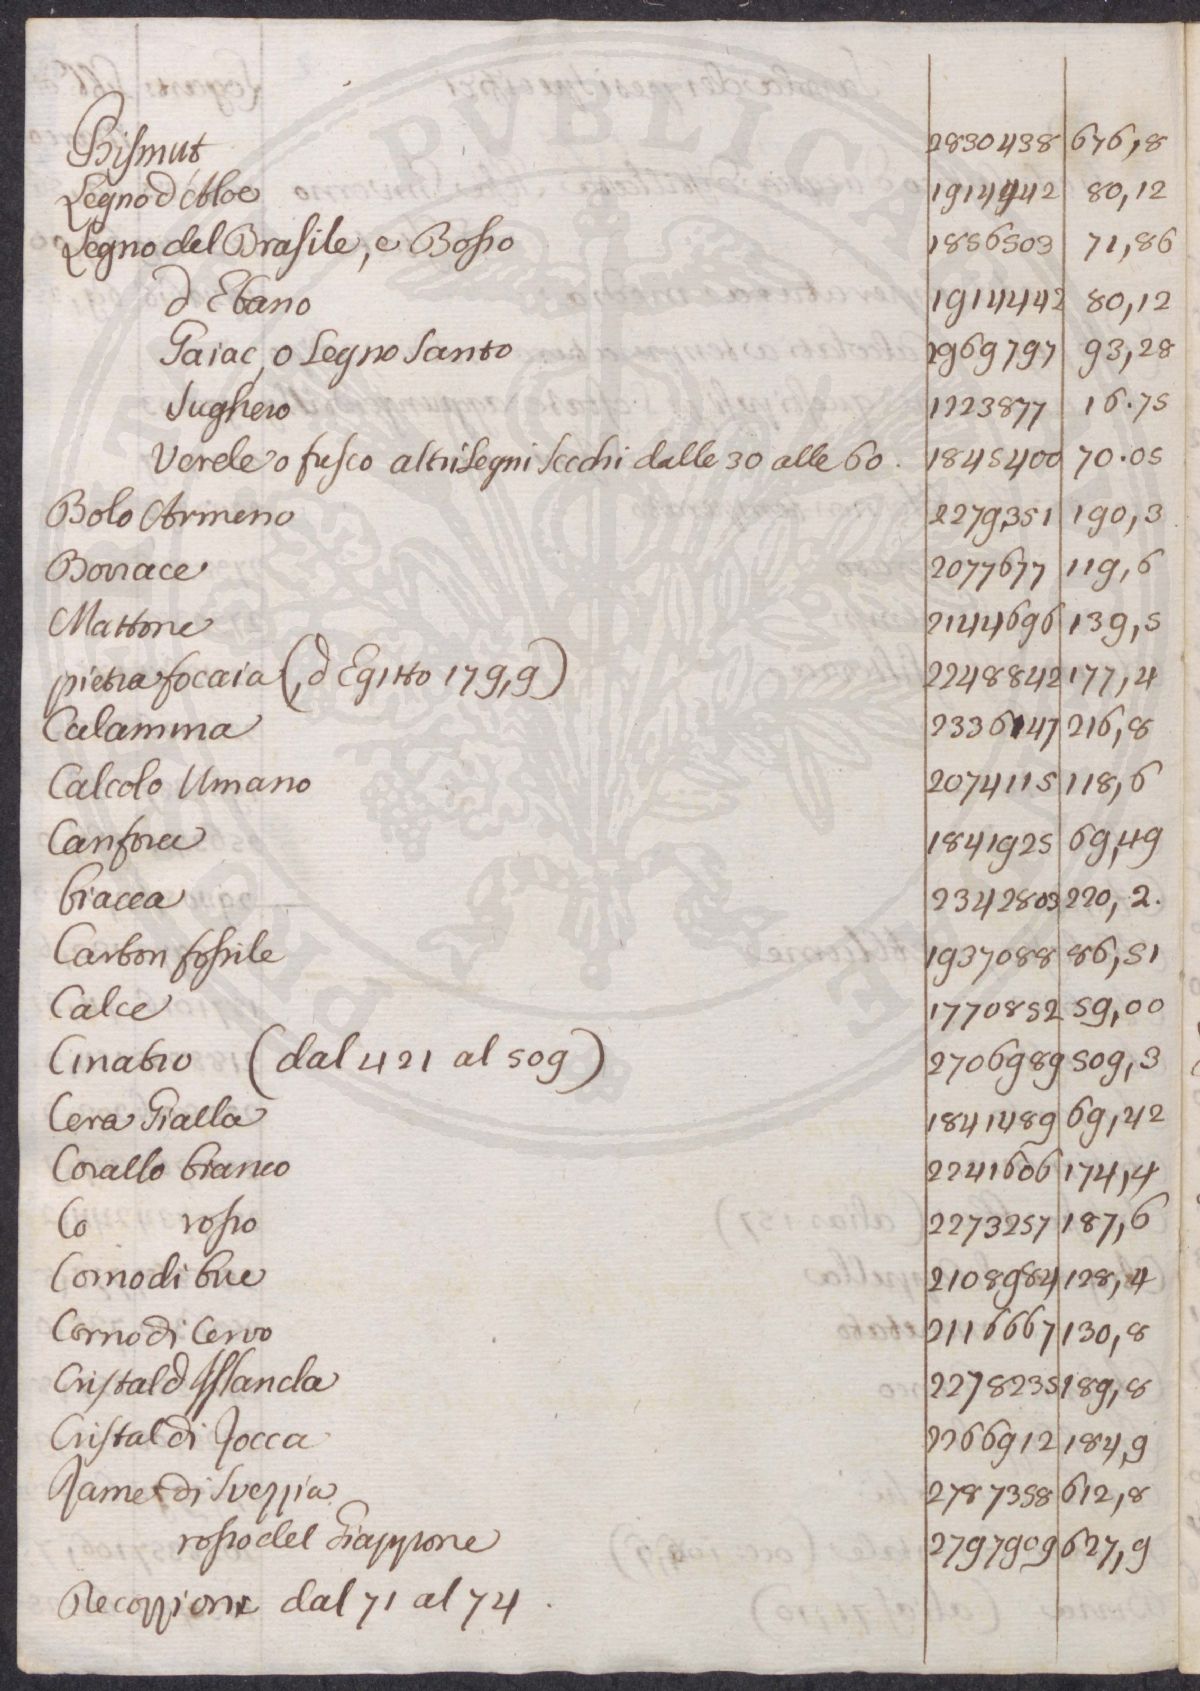 Bismut 2830438 676,8
Legno d'Aloe 1914942 80,12
Legno del Brasile, e Bosso 1856503 71,86
d'Ebano 1914442 80,12
Gaiac, o Legno Santo 1969797 93,28
Sughero 1223877 16.75
Verde o fusco altri Legni secchi dalle 30 alle 60. 1845400 70.05
Bolo Armeno 2279351 190,3
Borrace 2077677 119,6
Mattone 2144696 139,5
pietra focaia (d'Egitto 179,9) 2248842 177,4
Calamina 2336147 216,8
Calcolo Umano 2074115 118,6
Canfora 1841925 69,49
biacca 2342803 220,2.
Carbon fossile 1937088 86,51
Calce 1770852 59,00
Cinabro (dal 421 al 509) 2706989 509,3
Cera Gialla 1841489 69,42
Corallo bianco 2241606 174,4
Co rosso 2273257 187,6
Corno di bue 2108984 128,4
Corno di Cervo 2116667 130,8
Cristal d'Islanda 2278235 189,8
Cristal di Rocca 2266912 184,9
Rame di Svezzia 2787358 612,8
rosso del Giappone 2797909 627,9
Recozzione dal 71 al 74.
PVBLICA